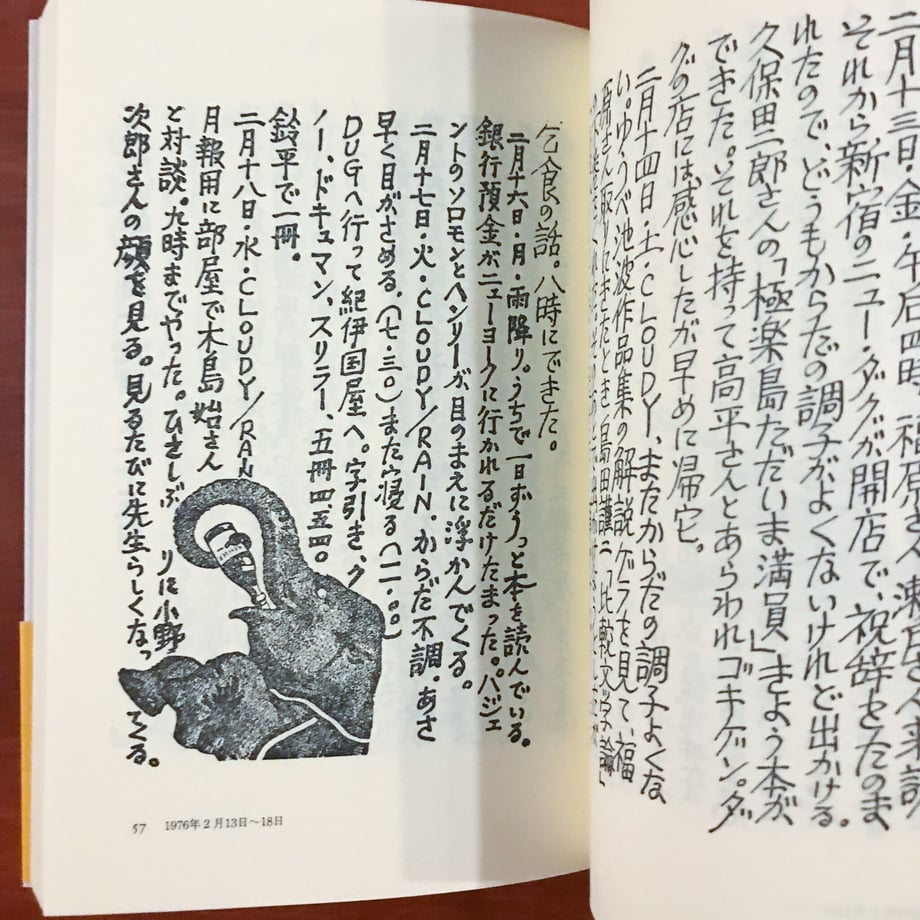 二月十三日・金・午后四時
それから新宿のニュー・ダグが開店で、祝辞をたのま
れたので、どうもからだの調子がよくないけれど出かける。
久保田二郎さんの「極楽島ただいま満員」きょう本が
できた。それを持って高平さんとあらわれゴキゲン。ダ
グの店には感心したが早めに帰宅。
二月十四日・土・CLOUDY、またからだの調子よくな
い。ゆうべ池波作品集の解説ゲラを見て、福
原さん取りにきたとき、島田謹二「比較文学論」
乞食の話。八時にできた。
二月十六日・月・雨降り。うちで一日ずうっと本を読んでいる。
銀行預金がニューヨークに行かれるだけたまった。バジェ
ントのソロモンとヘンリーが目のまえに浮かんでくる。
二月十七日・火・CLOUDY/RAIN.からだ不調。あさ
早く目がさめる。(七・三〇)また寝る(一一・〇〇)
DUGへ行って紀伊国屋へ。字引き、ク
ノー、ドキュマン、スリラー、五冊四、五四〇
鈴平で一冊。
二月十八日・水・CLOUDY/RAN
月報用に部屋で木島始さん
と対談。九時までやった。ひさしぶりに小野
次郎さんの顔を見る。見るたびに先生らしくなってくる。
57 1976年2月13日〜18日